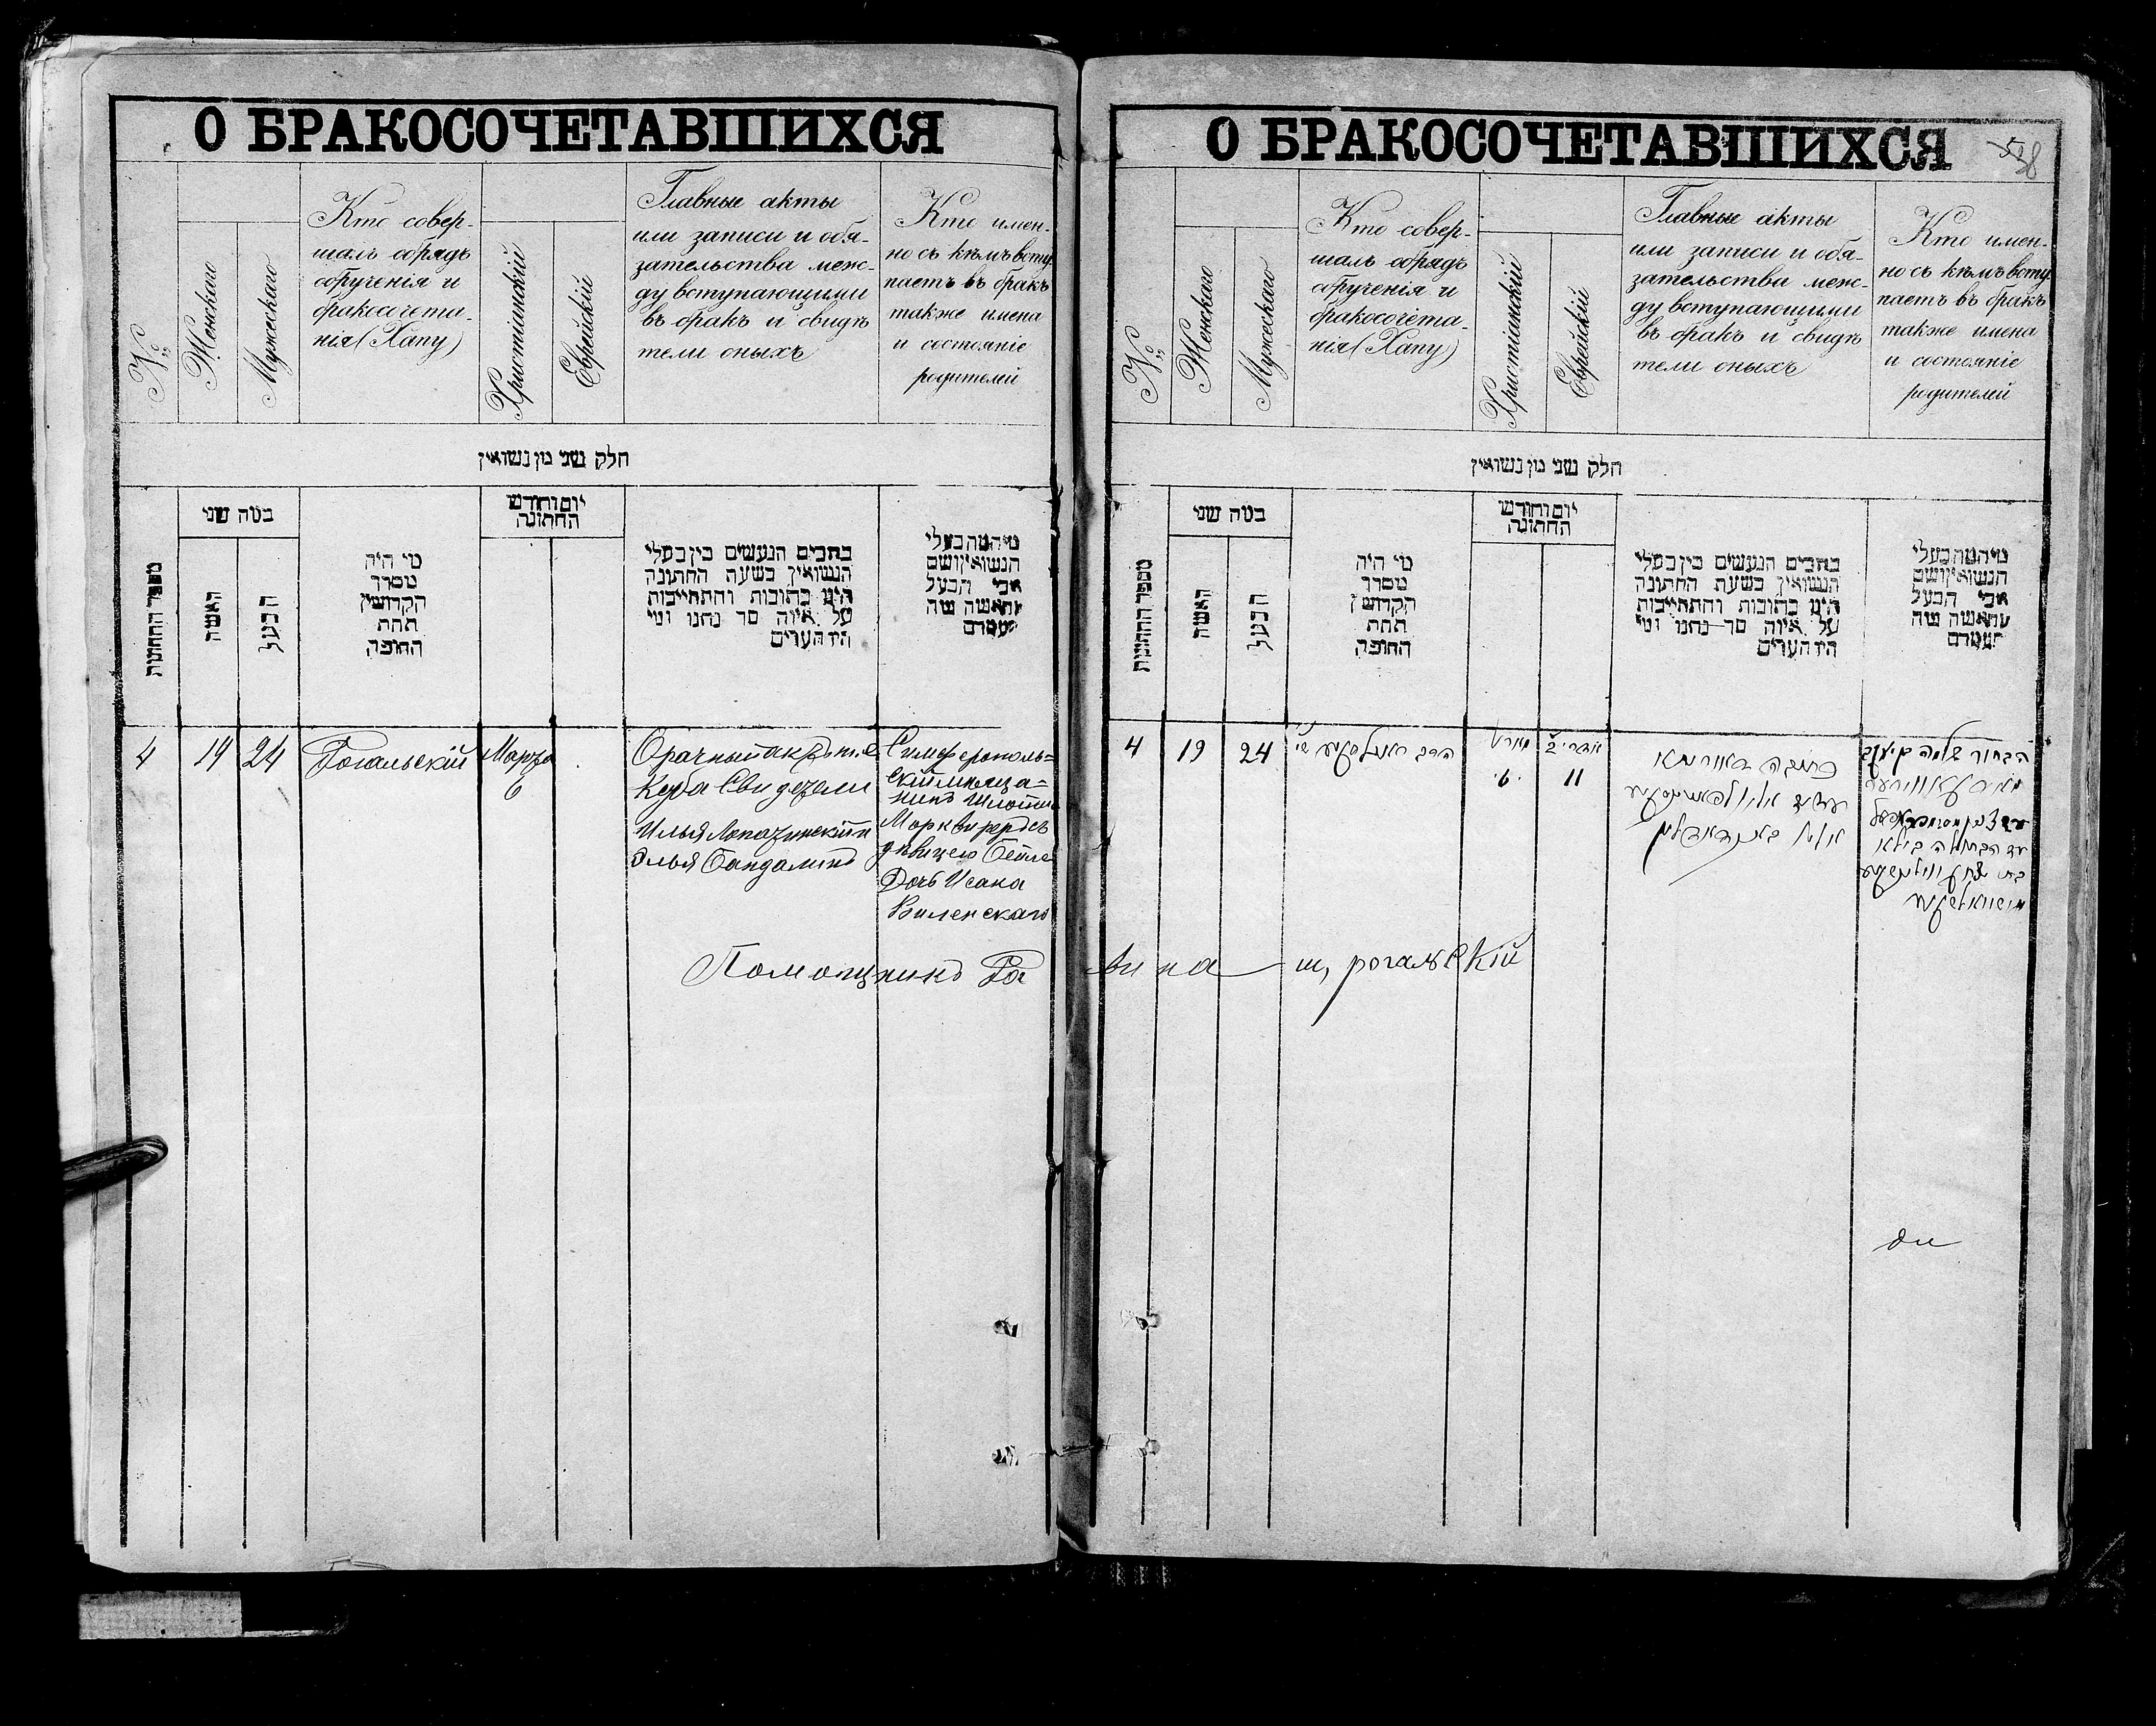 О БРАКОСОЧЕТАВШИХСЯ
№
Женскаго
Мужескаго
Кто совер-
шалъ обрядъ
обрученія и
бракосочета-
нія (Хапу)
Христіанскій
Еврейскій
Главные акты
или записи и обя-
зательства меж-
ду вступающими
въ бракъ и свидѣ
тели оныхъ
Кто имен-
но съ кѣмъ всту-
паетъ въ бракъ
также имена
и состояніе
родителей
חלק שני מן נשואין
מספר החתונות
כמה שני
האשה
הבעל
מי היה
מסדר
הקדושין
תחת
החופה
יום וחודש
החתונה
כתבים הנעשים בין בעלי
הנשואין בשעת החתונה
היינו כתובות והתחייבות
על איזה סך נתנו ומי
היו העדים
מי המה בעלי
הנשואין ושם
אבי הבעל
והאשה ומה
מעמדם
4
19
24
Рогальскій
Марта
6
Куба Свидетели
Илья
Илья Бандалинъ
Симферополь-
скій мѣща-
нинъ
дѣвицею Бейле
Дочь Исака
Виленскаго
Помощникъ Ра
О БРАКОСОЧЕТАВШИХСЯ
58
№
Женскаго
Мужескаго
Кто совер-
шалъ обрядъ
обрученія и
бракосочета-
нія (Хапу)
Христіанскій
Еврейскій
Главные акты
или записи и обя-
зательства меж-
ду вступающими
въ бракъ и свидѣ
тели оныхъ
Кто имен-
но съ кѣмъ всту-
паетъ въ бракъ
также имена
и состояніе
родителей
חלק שני מן נשואין
מספר החתונות
כמה שני
האשה
הבעל
מי היה
מסדר
הקדושין
תחת
החופה
יום וחודש
החתונה
כתבים הנעשים בין בעלי
הנשואין בשעת החתונה
היינו כתובות והתחייבות
על איזה סך נתנו ומי
היו העדים
מי המה בעלי
הנשואין ושם
אבי הבעל
והאשה ומה
מעמדם
4
19
24
הרב
מארט
6
11
כתובה דאורייתא
הבחור שלמה
עד הבתולה ביילא
вина ш, рогальскій